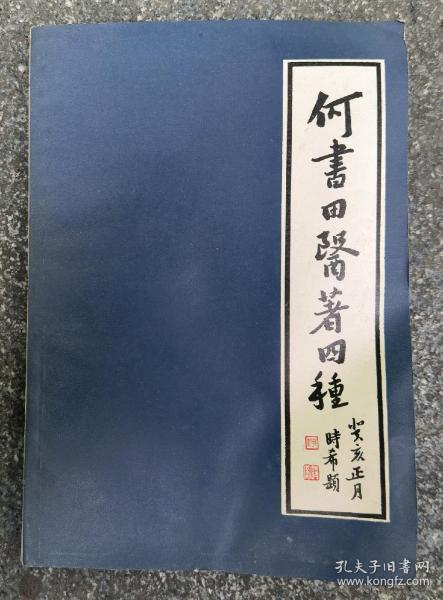 何書田醫著四種
癸亥正月
時希題
孔夫子旧书网
www.kongfz.com